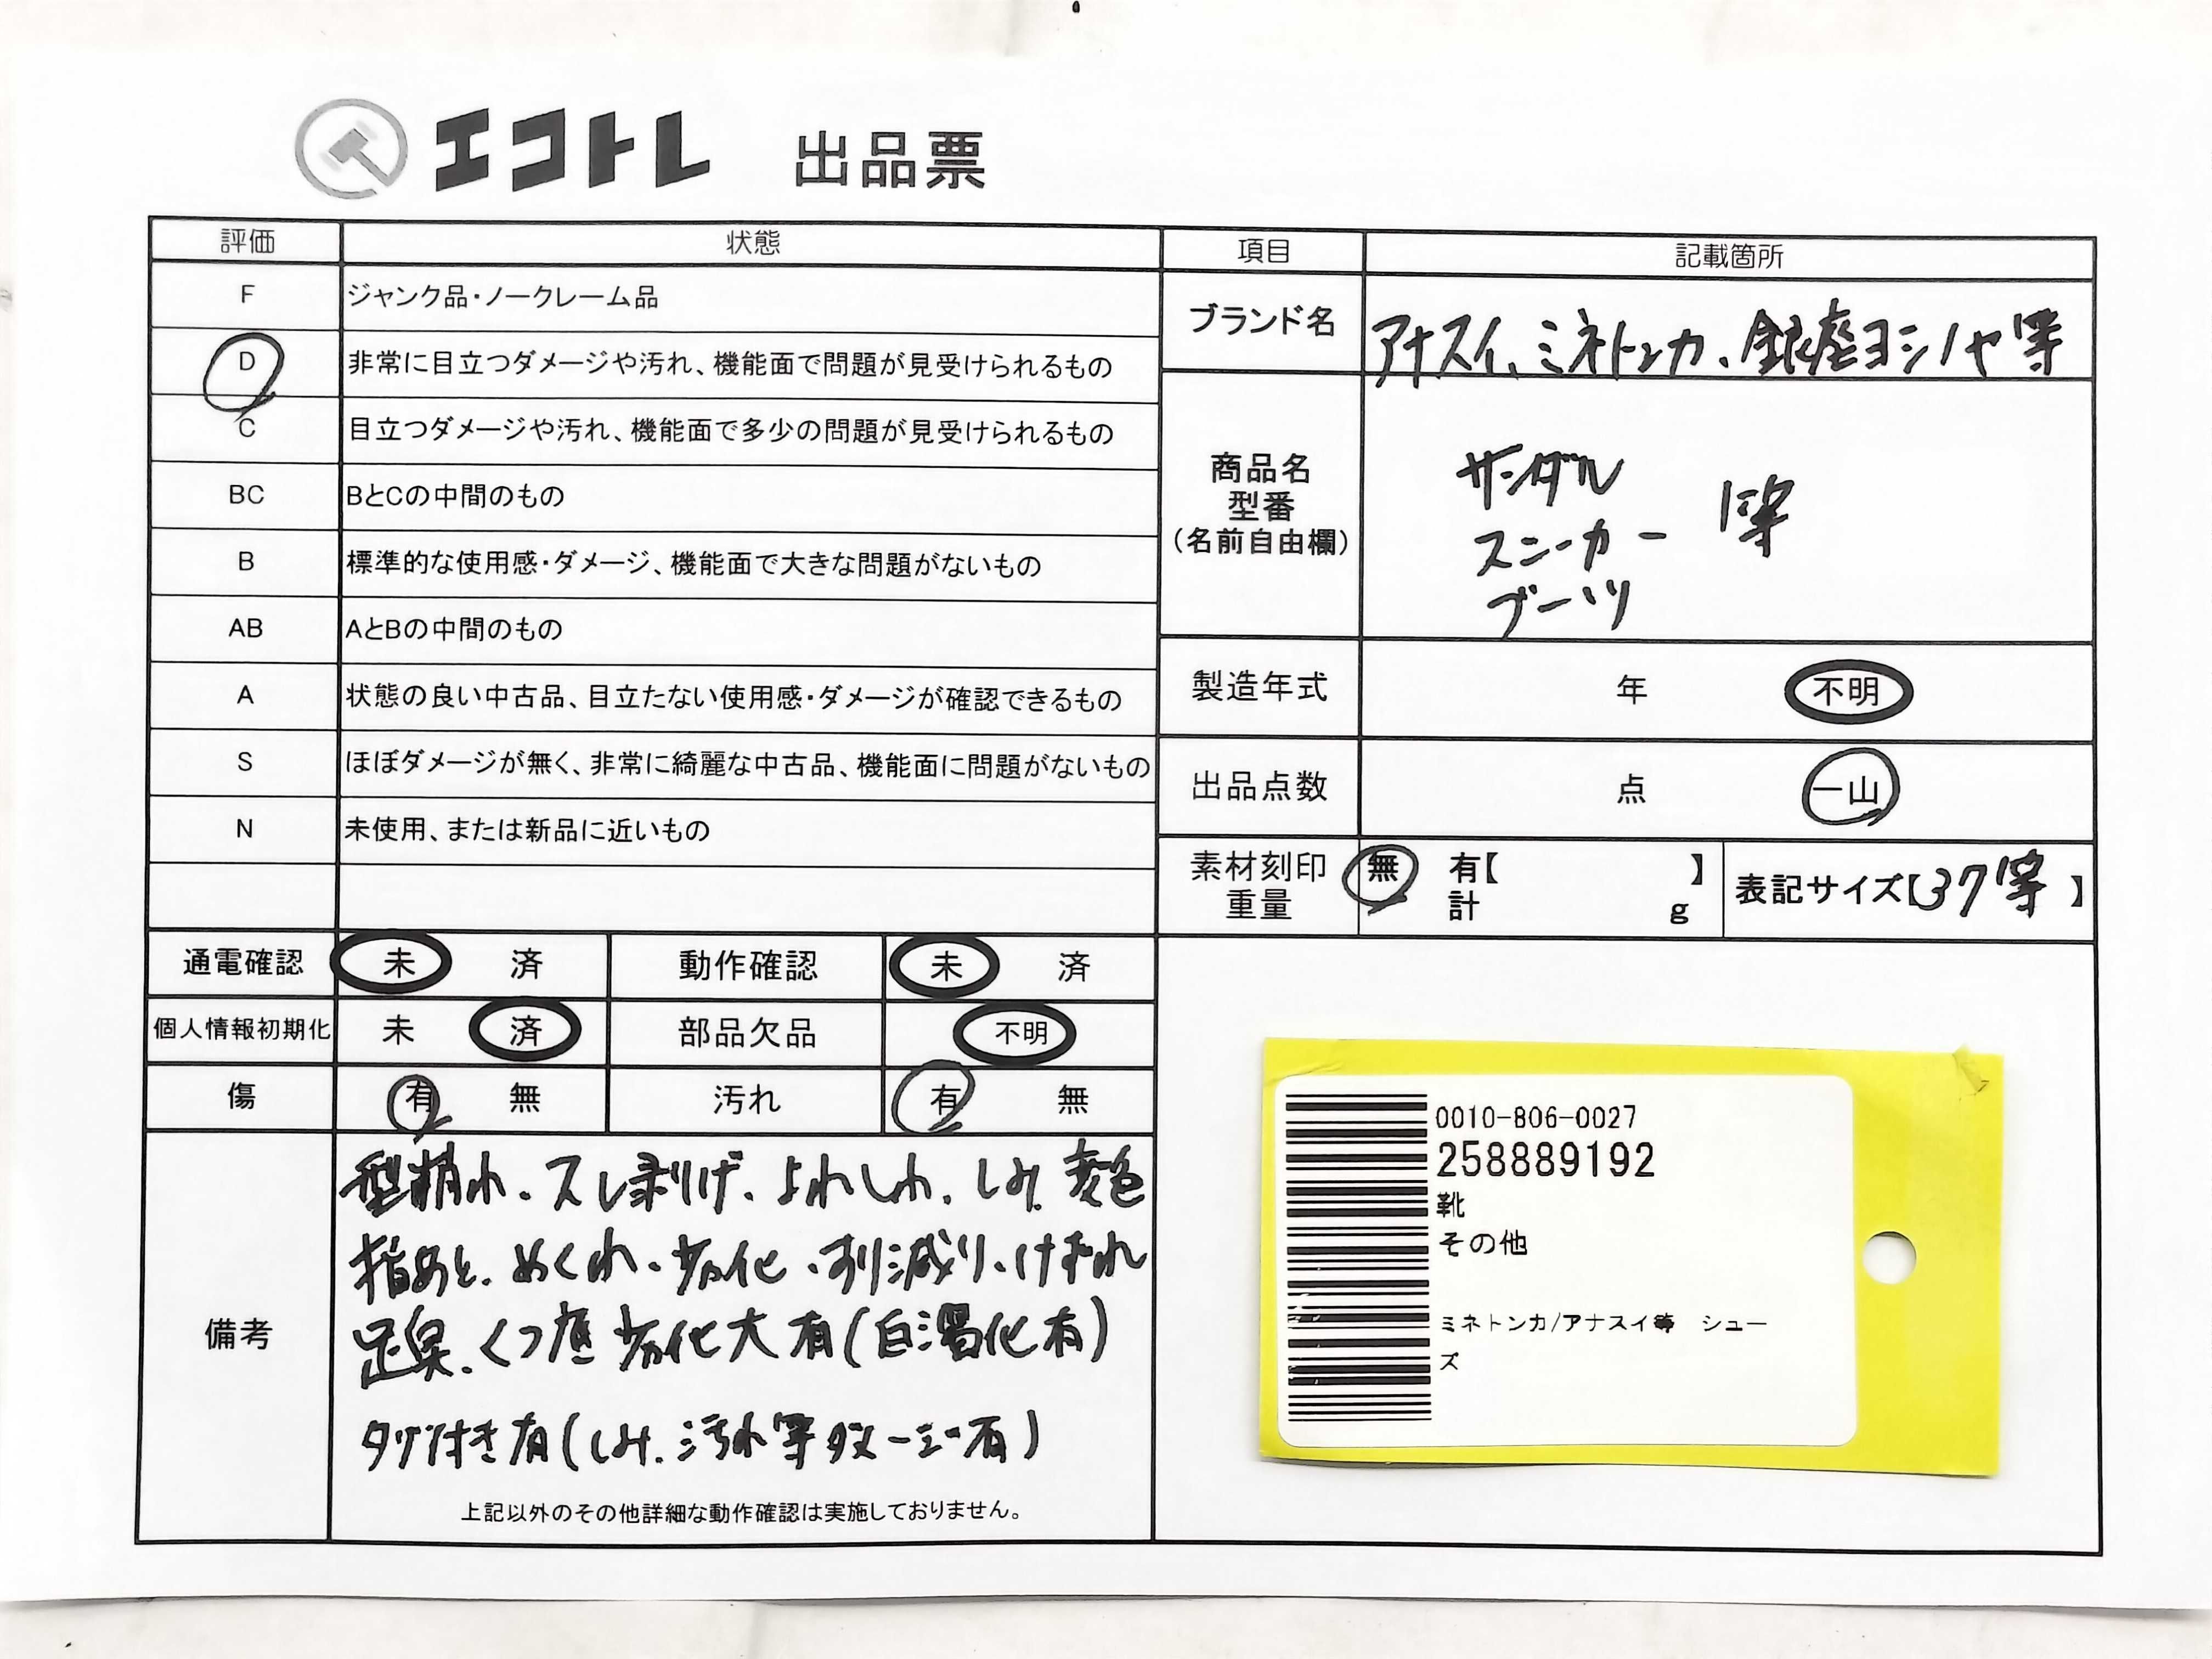 エコトレ 出品票
評価 状態 項目 記載箇所
F ジャンク品・ノークレーム品
D 非常に目立つダメージや汚れ、機能面で問題が見受けられるもの
C 目立つダメージや汚れ、機能面で多少の問題が見受けられるもの
BC BとCの中間のもの
B 標準的な使用感・ダメージ、機能面で大きな問題がないもの
AB AとBの中間のもの
A 状態の良い中古品、目立たない使用感・ダメージが確認できるもの
S ほぼダメージが無く、非常に綺麗な中古品、機能面に問題がないもの
N 未使用、または新品に近いもの
ブランド名 アナスイ、ミネトンカ、銀座ヨシノヤ等
商品名
型番
(名前自由欄)
サンダル
スニーカー 等
ブーツ
製造年式 年 不明
出品点数 点 一山
素材刻印 無 有【 】
重量 計 g
表記サイズ【37等】
通電確認 未 済 動作確認 未 済
個人情報初期化 未 済 部品欠品 不明
傷 有 無 汚れ 有 無
備考
型崩れ、スレ剥げ、よれしわ、しみ、変色
指あと、めくれ、劣化、すり減り、けずれ
足臭、くつ底劣化大有(白濁化有)
タグ付き有(しみ、汚れ等ダメージ有)
上記以外のその他詳細な動作確認は実施しておりません。
0010-806-0027
258889192
靴
その他
ミネトンカ/アナスイ等 シュー
ズ